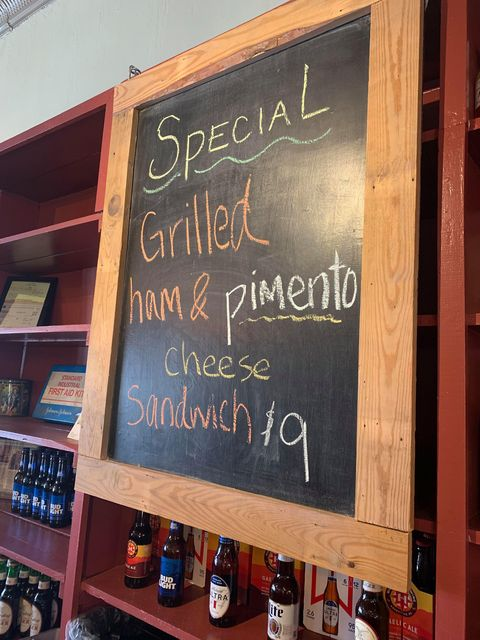 SPECIAL
Grilled
ham & pimento
cheese
Sandwich $9
STANDARD
INDUSTRIAL
FIRST AID KIT
Johnson & Johnson
BUD
LIGHT
BUD
LIGHT
ULTRA
Lite